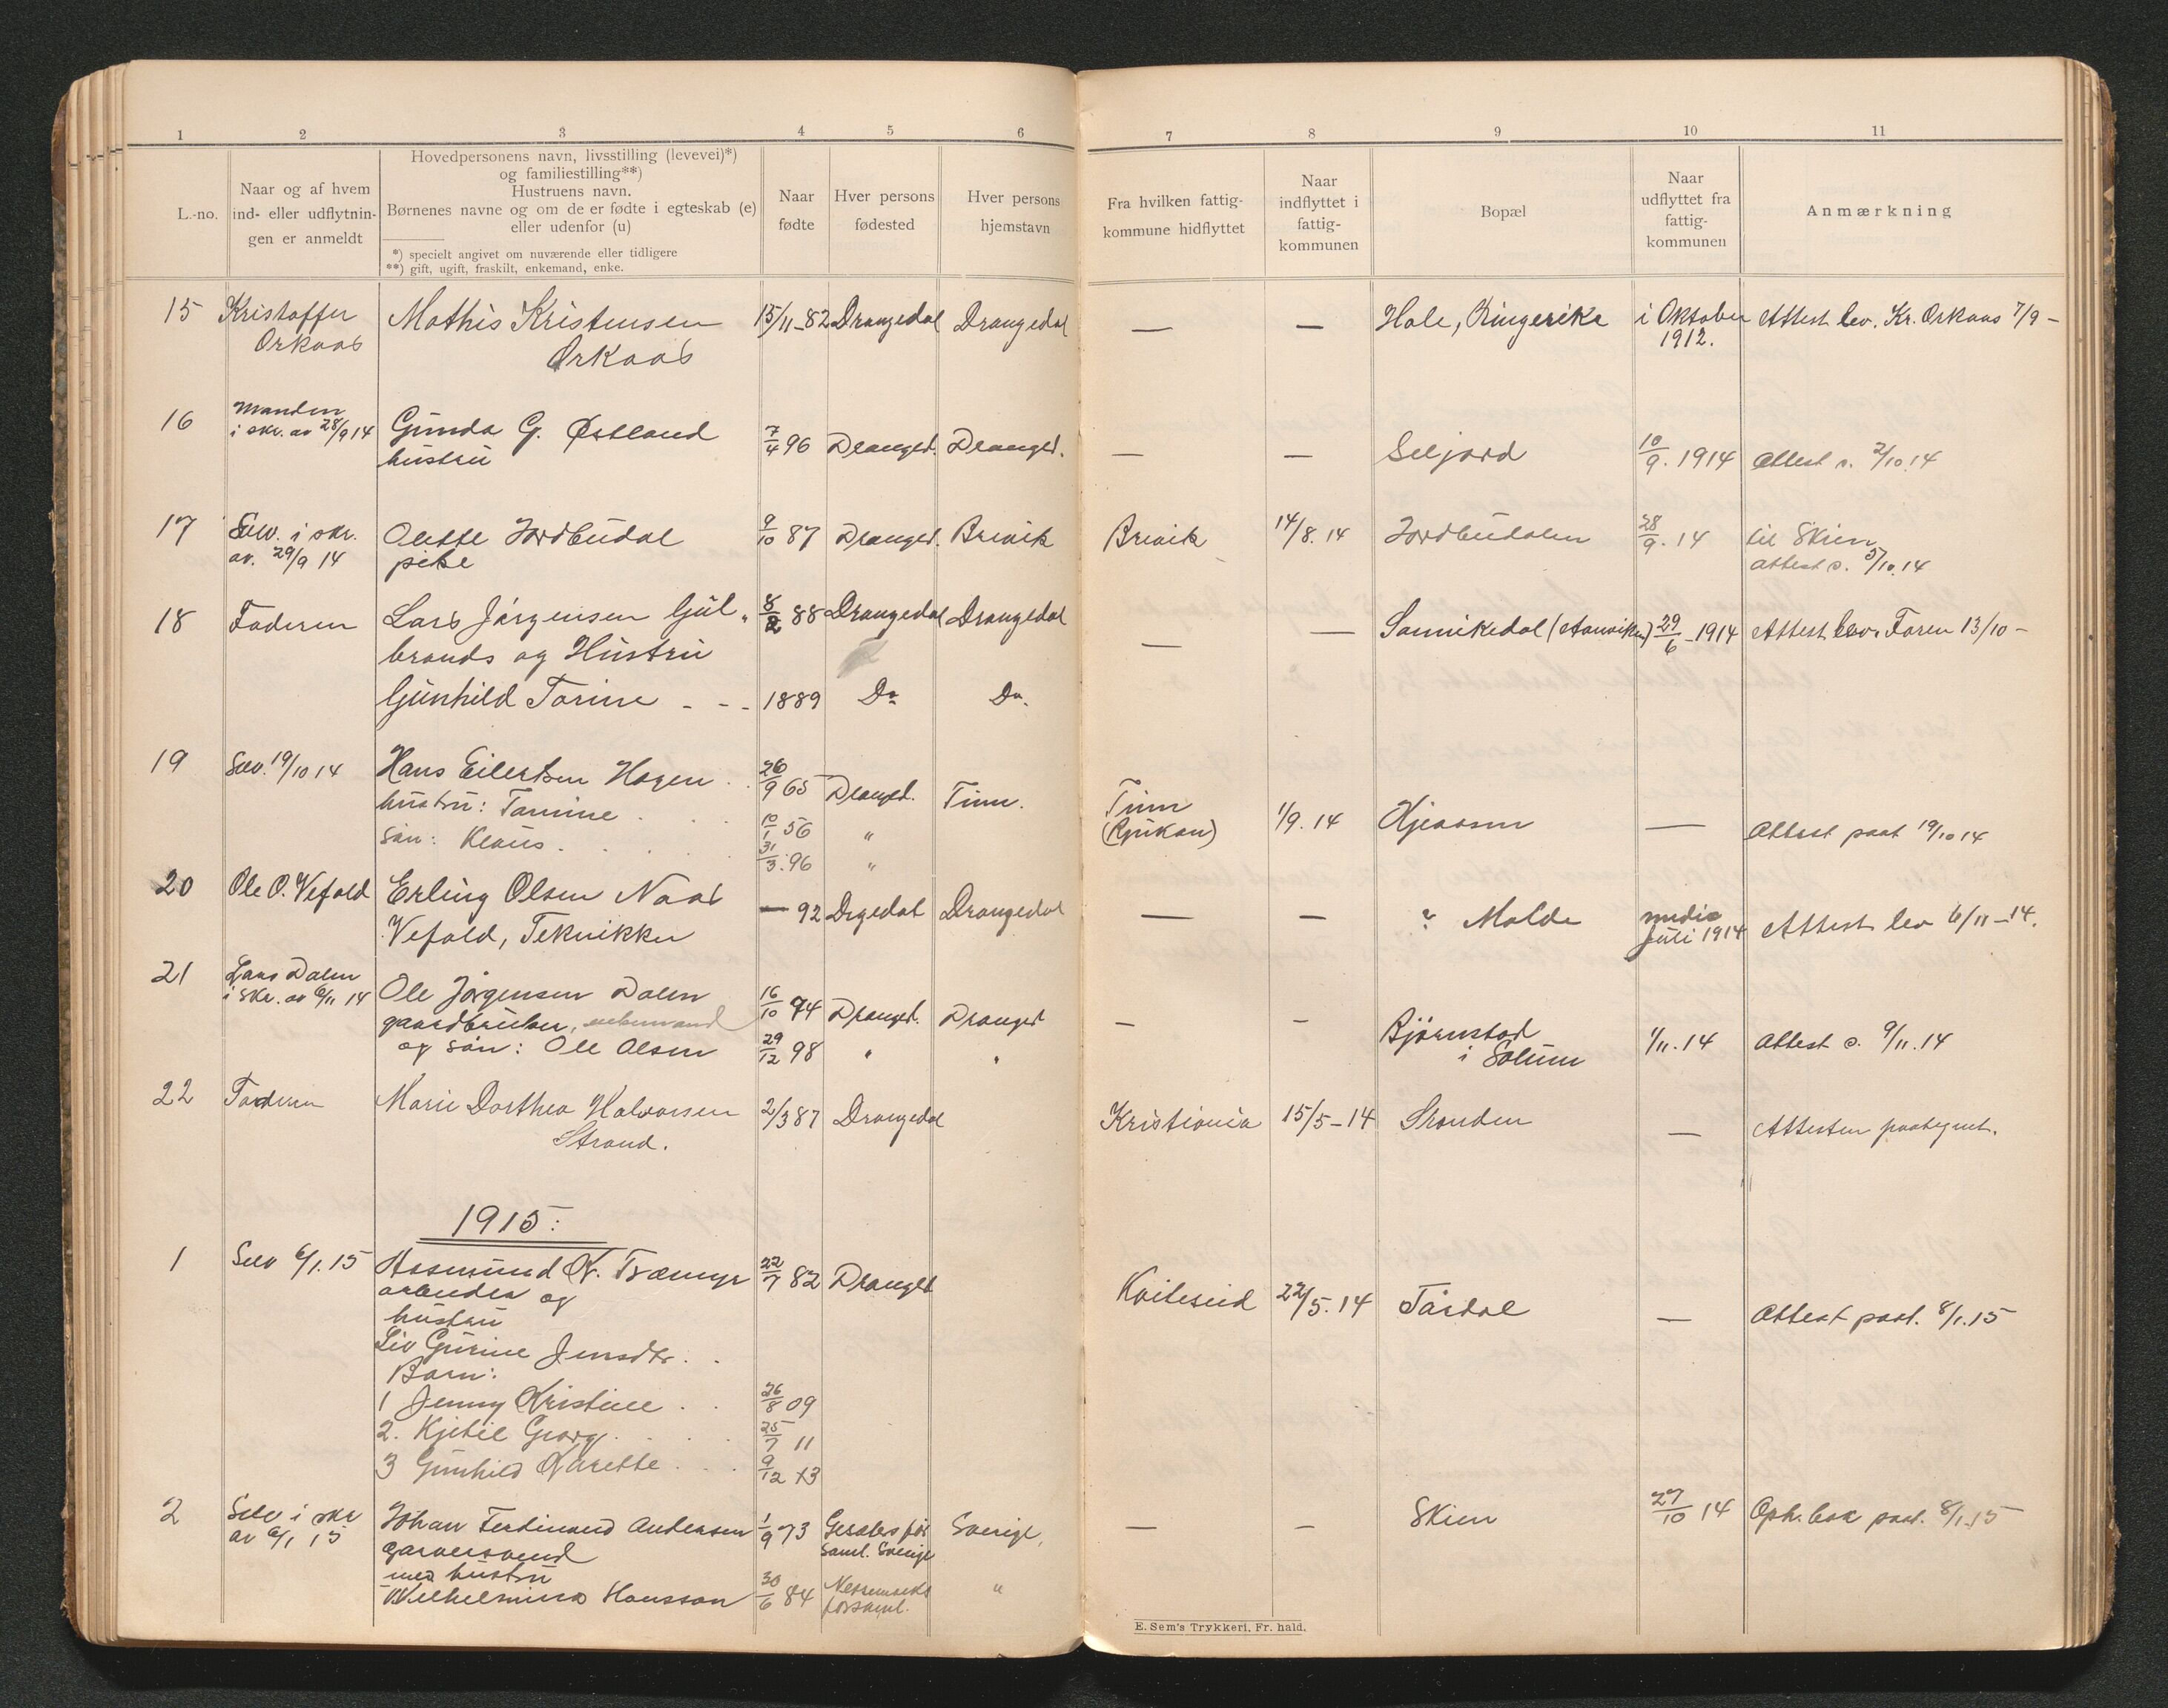 1 2 3 4 5 6 7 8 9 10 11
L.-no.
Naar og af hvem
ind- eller udflytnin-
gen er anmeldt
Hovedpersonens navn, livsstilling (levevei)*)
og familiestilling**)
Hustruens navn.
Børnenes navne og om de er fødte i egteskab (e)
eller udenfor (u)
*) specielt angivet om nuværende eller tidligere
**) gift, ugift, fraskilt, enkemand, enke.
Naar
fødte
Hver persons
fødested
Hver persons
hjemstavn
Fra hvilken fattig-
kommune hidflyttet
Naar
indflyttet i
fattig-
kommunen
Bopæl
Naar
udflyttet fra
fattig-
kommunen
Anmærkning
15 Kristoffer Mathis Kristensen 15/11-82 Drangedal Drangedal — — Hole, Ringerike i Oktober Attest lev. Kr. Orkaas 7/9 -
Orkaas Ørkaas 1912.
16 Manden
i skr. av 28/9 14 Gunda G. Østland 7/4 96 Dranged. Dranged. — — Seljord 10/9. 1914 Attest s. 2/10.14
hustru
17 Selv. i skr. Olette Jordbudal 9/10 87 Dranged. Brevik Brevik 14/8. 14 Jordbudalen 28/9. 14 til Skien
av. 29/9 14 pike attest s. 5/10.14
18 Faderen Lars Jørgensen Gul- 8/2 88 Drangedal Drangedal — — Sannikedal 29/6 - 1914 Attest lev. Faren 13/10 -
brands og Hustru
Gunhild Torine - - - 1889 Do Do.
19 Selv. 19/10 14 Hans Eilertsen Hagen . 26/9 65 Dranged. Tinn. Tinn 1/9. 14 — Attest paat 19/10 14
hustru: Tomine . . . 10/1 56 " (Rjukan)
søn: Klaus . . . . 31/3. 96 "
20 Ole O. Vefald Erling Olsen Naas — 92 Drgedal Drangedal — — ? Molde medio Attest lev 6/11-14.
Vefald, Tekniker juli 1914
21 Lars Dalen
i skr. av 6/11 14 Ole Jørgensen Dalen 16/10 74 Dranged. Dranged — — Bjørnstad 1/11. 14 Attest s. 9/11. 14
gaardbruker, enkemand i Solum
og søn: Ole Olsen 29/12 98 " "
22 Faderen Marie Dorthea Halvorsen 2/3 87 Drangedal Kristiania 15/5-14 Stranden — Attesten paategnet.
Strand.
1915:
1 Selv 6/1. 15 Aasmund K. Træmyr 22/7 82 Dranged Kviteseid 22/5. 14 Tørdal — Attest paat. 8/1. 15
arbeider og
hustru
Liv Gurine Jensdtr. . .
Barn:
1 Jenny Kristine . . 26/8 09
2. Kjetil Georg . . . . 25/7 11
3 Gunhild Karette . . . 9/12 13
2 Selv i skr Johan Ferdinand Andersen 1/9 73 Sverige. — — Skien 27/10 14 Oph. bok paat. 8/1. 15
av 6/1 15 garversvend saml. Sverige
med hustru
Wilhelmina Hansson 30/6 84 forsaml. "
E. Sem's Trykkeri, Fr. hald.